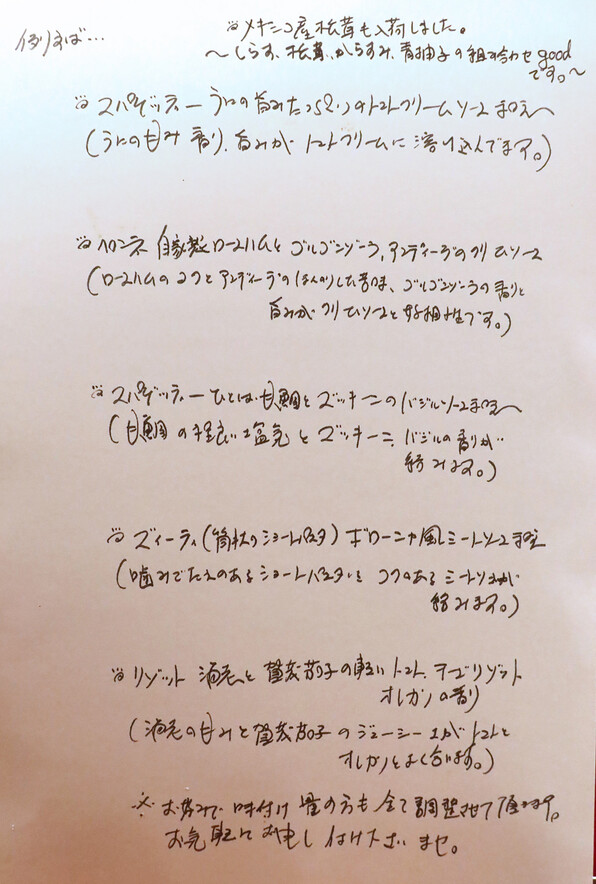 例えば…
メキシコ産松茸も入荷しました。
〜しらす、松茸、からすみ、青柚子の組み合わせgood
です。〜
スパゲッティー うにの旨みたっぷりのトマトクリームソース
(うにの甘み 香り、旨みが トマトクリームに 溶け込んでます。)
ペンネ 自家製ロースハムと ゴルゴンゾーラ,アンディーブのクリームソース
(ロースハムのコクとアンディーブのほんのりした苦味、ゴルゴンゾーラの香りと
旨みが クリームソースと好相性です。)
スパゲッティー 甘鯛とズッキーニのバジルソース
(甘鯛の程良い塩気とズッキーニ、バジルの香りが
絡みます。)
ズィーティ(筒状のショートパスタ) ボローニャ風ミートソース
(噛みごたえのあるショートパスタに コクのある ミートソースが
絡みます。)
リゾット 海老と賀茂茄子の軽いトマト リゾット
オレガノの香り
(海老の甘みと賀茂茄子のジューシーさがトマトと
オレガノとよく合います。)
※ お好みで 味付け 量の方も全て調整させて頂きます。
お気軽に お申し付け下さいませ。